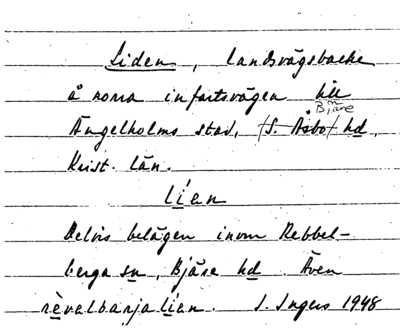 Liden, landsvägsbacke
å norra infartsvägen till
Bjäre
Ängelholms stad, (S. Åsbo) hd,
Krist. län.
lian
Delvis belägen inom Rebbel-
berga sn, Bjäre hd. Även
rèvalbarja lian. I. Ingers 1948